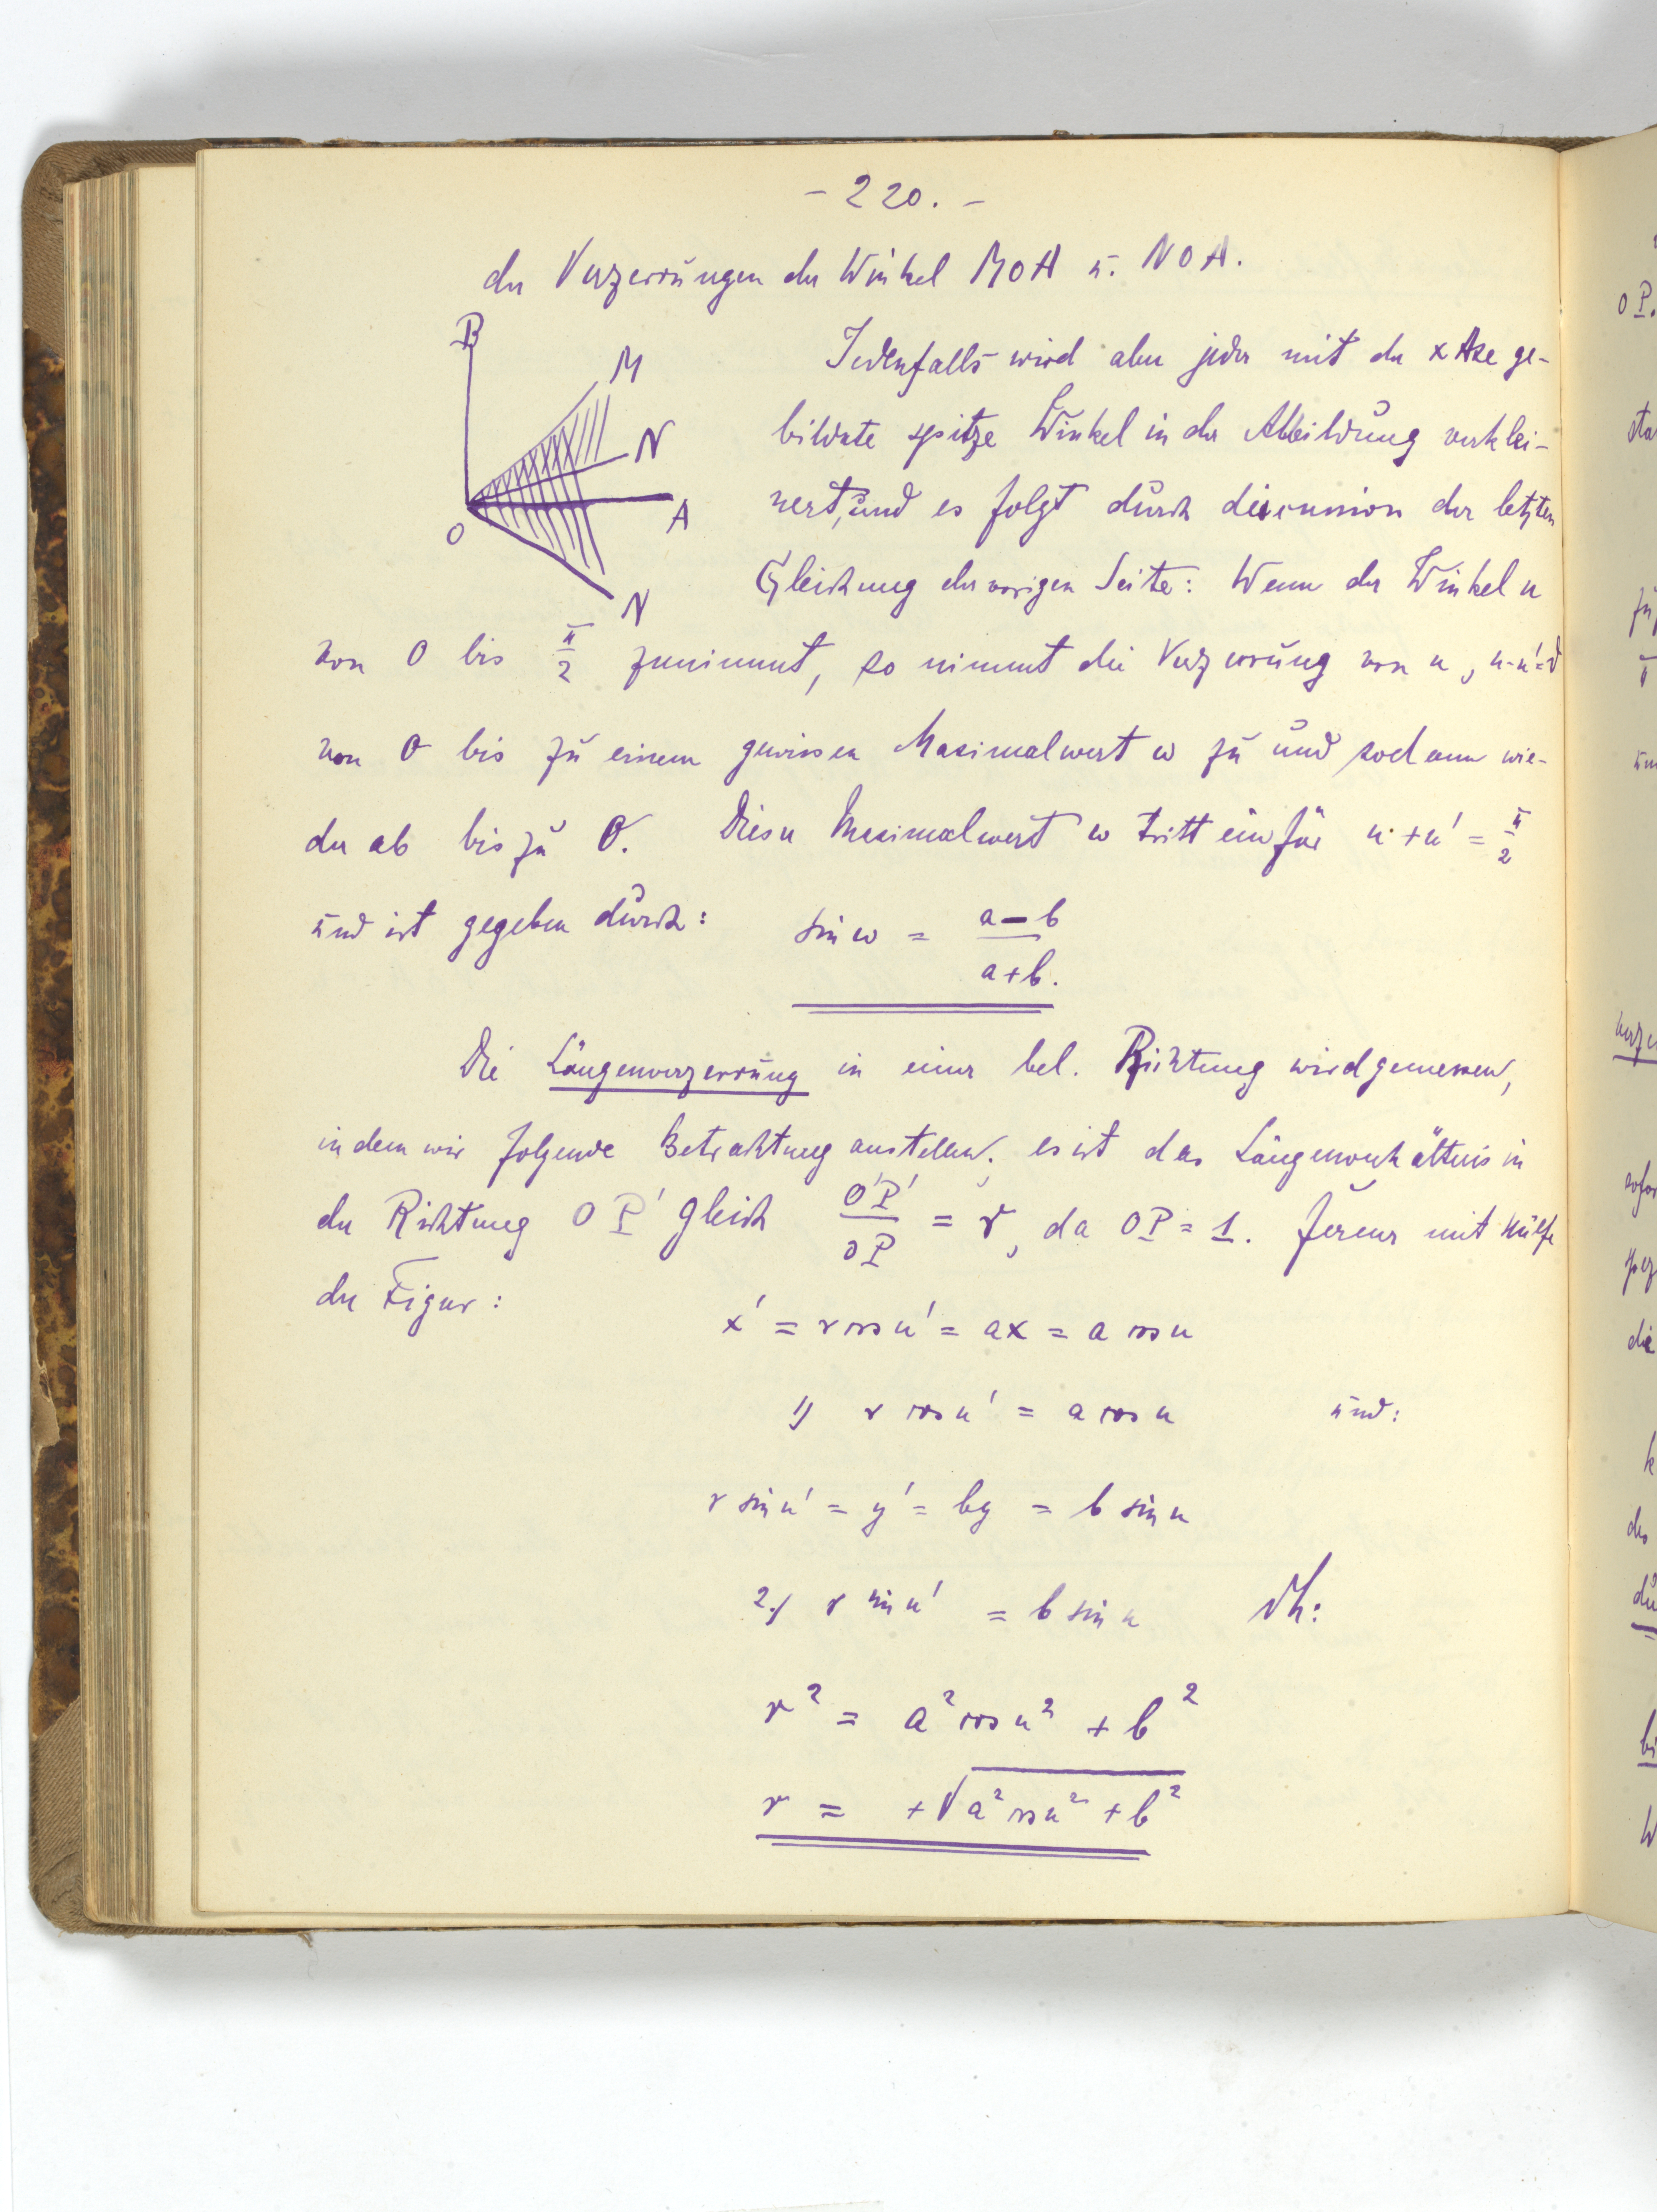 - 220. -
der Verzerrungen der Winkel MOA u. NOA.
B
M
N
A
O
N
Jedenfalls wird aber jeder mit der x Axe ge-
bildete spitze Winkel in der Abbildung verklei-
nert, und es folgt durch discussion der letzten
Gleichung der vorigen Seite: Wenn der Winkel u
von 0 bis π/2 zunimmt, so nimmt die Verzerrung von u, u-u'=
von 0 bis zu einem gewissen Maximalwert ω zu und sodann wie-
der ab bis zu 0. Dieser Maximalwert ω tritt ein für u + u' = π/2
und ist gegeben durch: sin ω = (a - b)/(a + b).
Die Längenverzerrung in einer bel. Richtung wird gemessen,
indem wir folgende Betrachtung anstellen; es ist das Längenverhältnis in
der Richtung OP' gleich O'P'/OP = r, da OP = 1. Ferner mit Hülfe
der Figur:
x' = r cos u' = ax = a cos u
1) r cos u' = a cos u und:
r sin u' = y' = by = b sin u
2.) r sin u' = b sin u dh:
r² = a² cos u² + b²
r = +√a² cos u² + b²